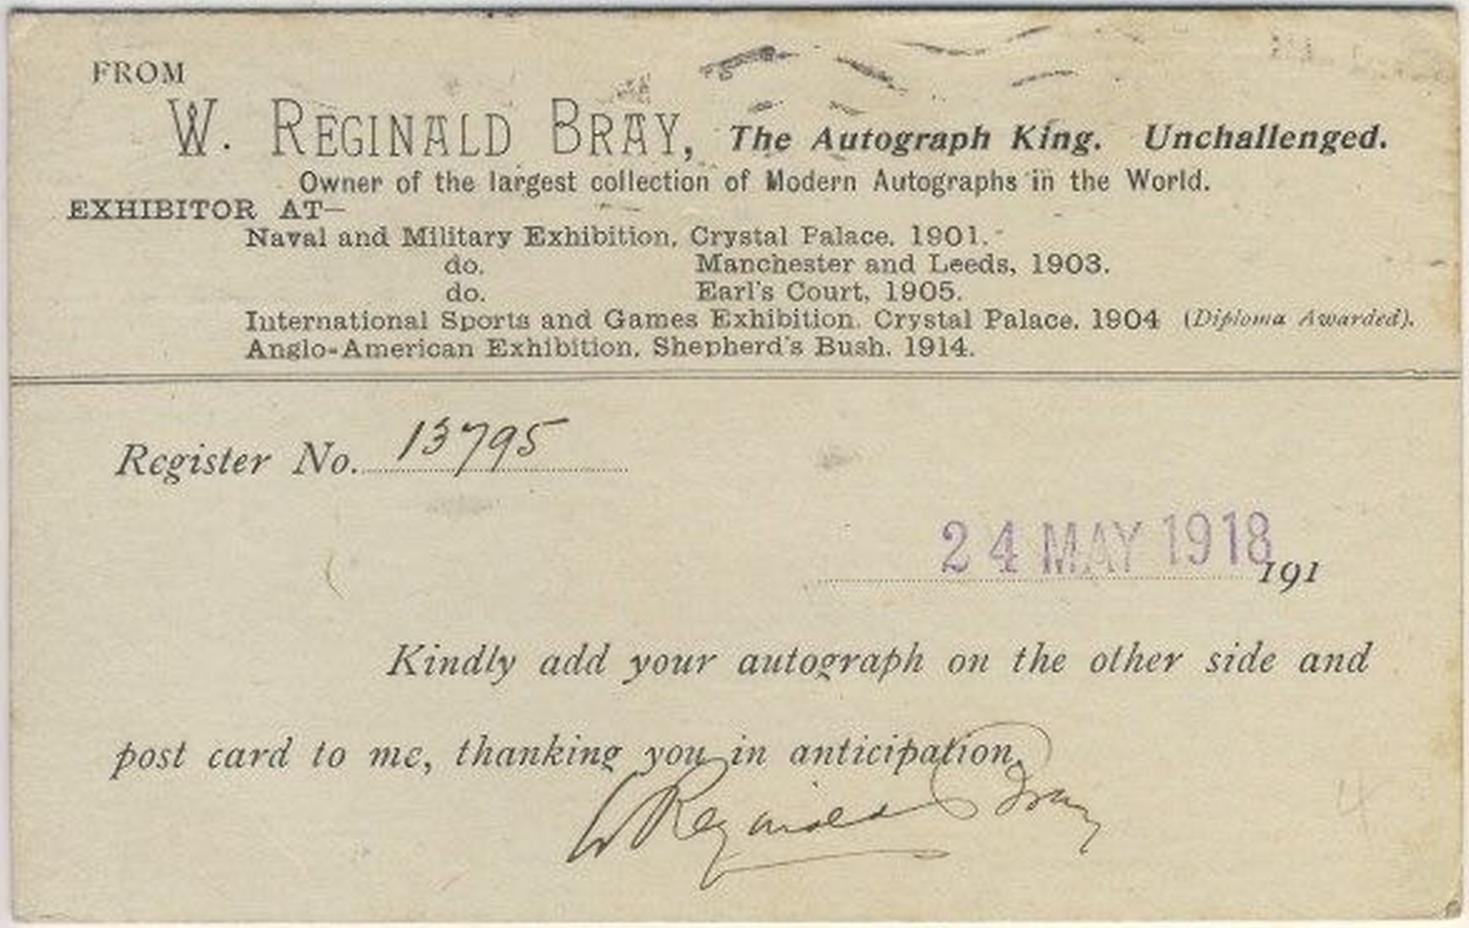 FROM
W. REGINALD BRAY, The Autograph King. Unchallenged.
Owner of the largest collection of Modern Autographs in the World.
EXHIBITOR AT—
Naval and Military Exhibition, Crystal Palace, 1901.
do. Manchester and Leeds, 1903.
do. Earl's Court, 1905.
International Sports and Games Exhibition, Crystal Palace, 1904 (Diploma Awarded).
Anglo-American Exhibition, Shepherd's Bush, 1914.
Register No. 13795
24 MAY 1918 191
Kindly add your autograph on the other side and
post card to me, thanking you in anticipation,
W Reginald Bray
4